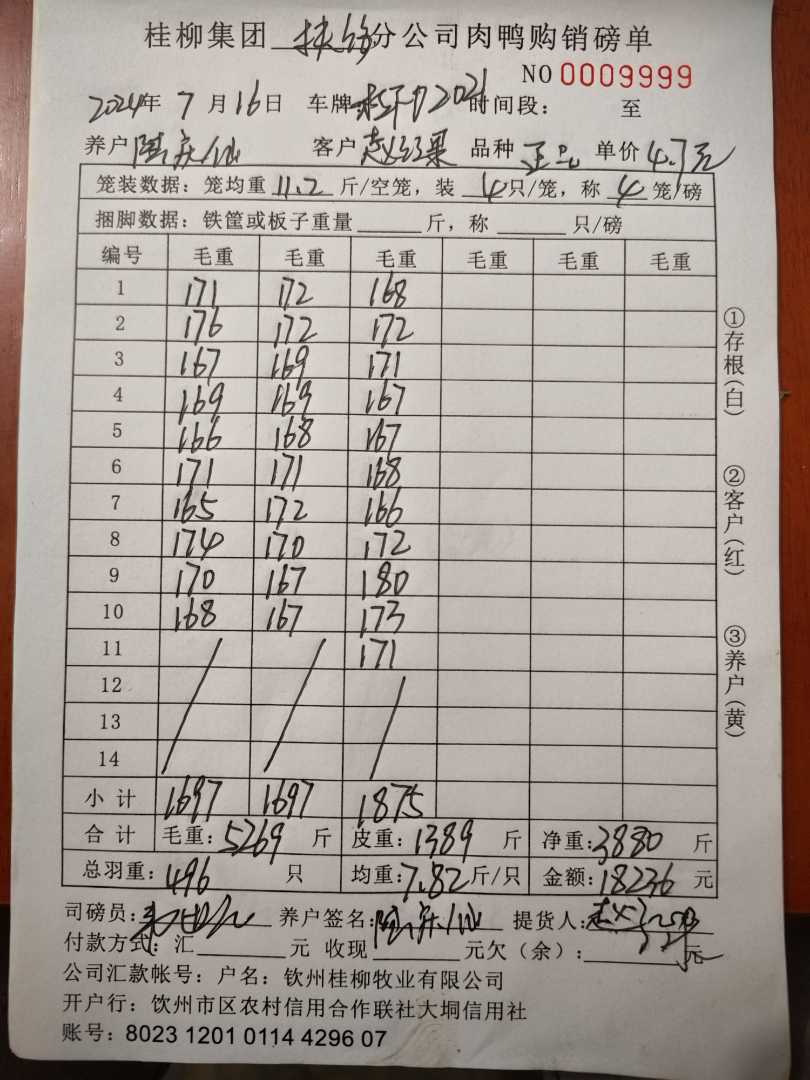 桂柳集团 扶绥 分公司肉鸭购销磅单
NO 0009999
2024年 7 月 16 日 车牌: 2021 时间段: 至
养户 陆庆仙 客户 赵红果 品种 正品 单价 4.7元
笼装数据: 笼均重 11.2 斤/空笼, 装 4只/笼, 称 4 笼/磅
捆脚数据: 铁筐或板子重量 斤, 称 只/磅
编号 毛重 毛重 毛重 毛重 毛重 毛重
1 171 172 168
2 176 172 172
3 167 169 171
4 169 169 167
5 166 168 167
6 171 171 168
7 165 172 166
8 174 170 172
9 170 167 180
10 168 167 173
11 / / 171
12 /
13
14
小计 1697 1697 1875
合计 毛重: 5269 斤 皮重: 1389 斤 净重: 3880 斤
总羽重: 496 只 均重: 7.82 斤/只 金额: 18236 元
司磅员: 养户签名: 陆庆仙 提货人:
付款方式: 汇 元 收现 元欠（余）: 元
公司汇款帐号: 户名: 钦州桂柳牧业有限公司
开户行: 钦州市区农村信用合作联社大垌信用社
账号: 8023 1201 0114 4296 07
①存根(白)
②客户(红)
③养户(黄)